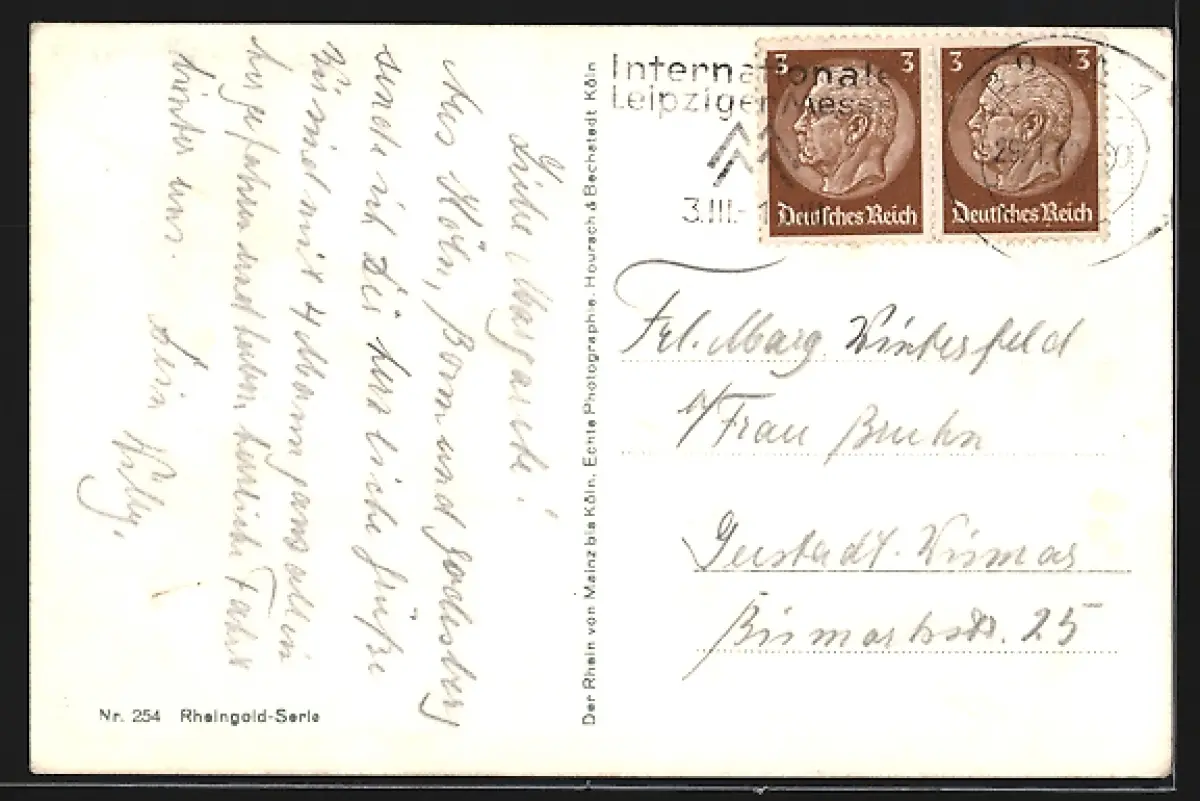 Internationale
Leipziger Messe
3.III.-
3 3
Deutsches Reich
3 3
Deutsches Reich
BONN
Liebe Margarete!
Aus Köln, Bonn und Godesberg
sende ich Dir herzliche Grüße
Bin mit 4 Mann ganz allein
hergefahren und haben herrliche Fahrt
hinter uns.
Dein Willy.
Der Rhein von Mainz bis Köln. Echte Photographie. Hoursch & Bechstedt Köln
Frl. Marg. Winterfeld
b/Frau Bruhn
Wismar
Bismarckstr. 25
Nr. 254 Rheingold-Serie